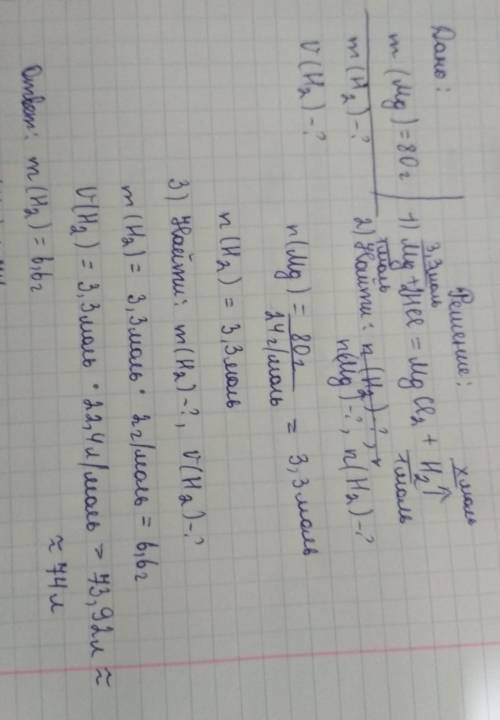 Дано:
m (Mg) = 80 г
m (H₂) - ?
V (H₂) - ?
Решение:
3,3 моль x моль
1) Mg + 2HCl = MgCl₂ + H₂↑
1 моль 1 моль
2) Найти: n(Mg) - ?, n(H₂) - ?
n(Mg) = 80 г / 24 г/моль = 3,3 моль
n(H₂) = 3,3 моль
3) Найти: m(H₂) - ?, V(H₂) - ?
m(H₂) = 3,3 моль · 2 г/моль = 6,6 г
V(H₂) = 3,3 моль · 22,4 л/моль = 73,92 л ≈
≈ 74 л
Ответ: m(H₂) = 6,6 г